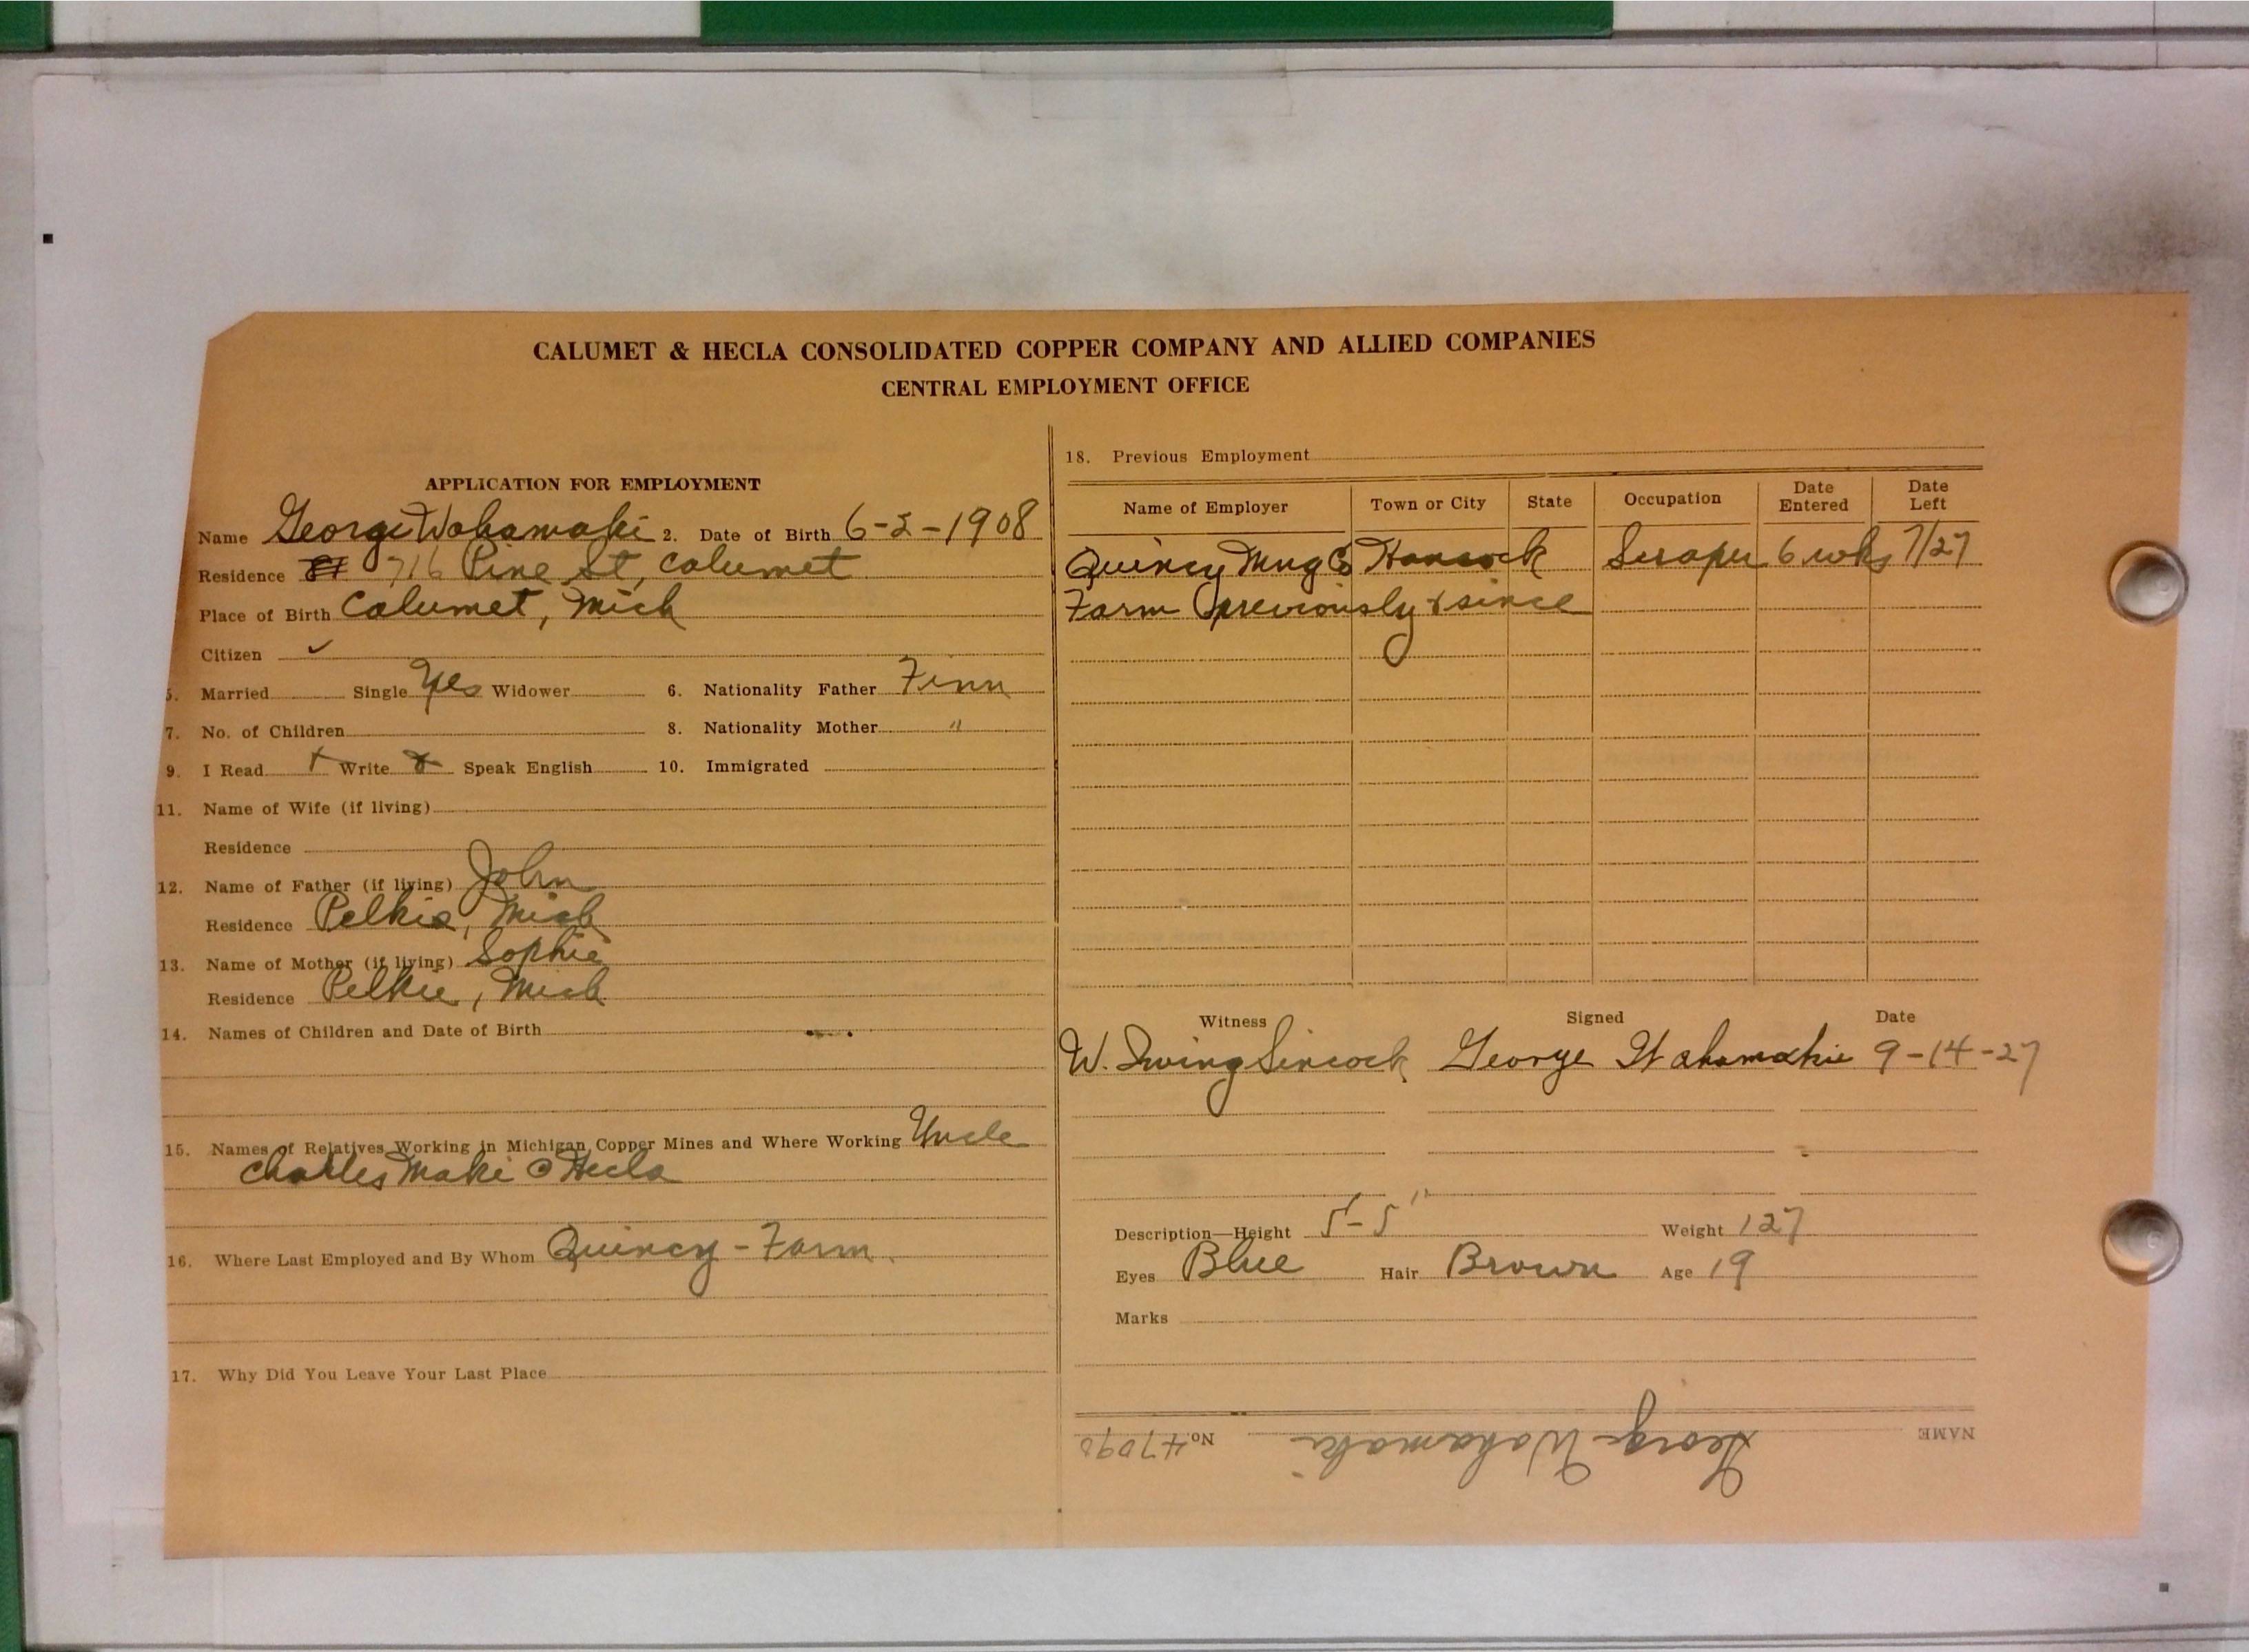 CALUMET & HECLA CONSOLIDATED COPPER COMPANY AND ALLIED COMPANIES
CENTRAL EMPLOYMENT OFFICE
APPLICATION FOR EMPLOYMENT
Name George Wahamaki 2. Date of Birth 6-2-1908
Residence 716 Pine St, Calumet
Place of Birth Calumet, Mich
Citizen ✓
5. Married Single Yes Widower 6. Nationality Father Finn
7. No. of Children 8. Nationality Mother "
9. I Read Write Speak English 10. Immigrated
11. Name of Wife (if living)
Residence
12. Name of Father (if living) John
Residence Pelkie, Mich
13. Name of Mother (if living) Sophie
Residence Pelkie, Mich
14. Names of Children and Date of Birth
15. Names of Relatives Working in Michigan Copper Mines and Where Working Uncle
Charles Maki C Hecla
16. Where Last Employed and By Whom Quincy - Farm.
17. Why Did You Leave Your Last Place
18. Previous Employment
Name of Employer Town or City State Occupation Date Entered Date Left
Quincy Mng Co Hancock Scraper 6 wks 7/27
Farm previously & since
Witness Signed Date
W. Irving Sincock George Wahamakie 9-14-27
Description—Height 5'-5" Weight 127
Eyes Blue Hair Brown Age 19
Marks
NAME George Wahamaki No. 47090